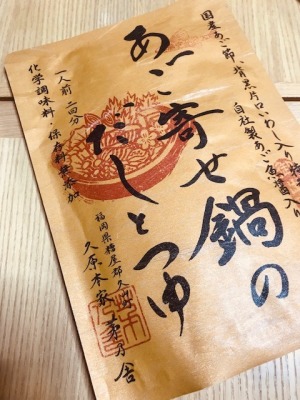 国産あご節、背黒片口いわし入り
自社製あご魚醤入り
あご寄せ鍋の
だしとつゆ
一人前 二回分
化学調味料・保存料無添加
福岡県糟屋郡久山町
久原本家 茅乃舎